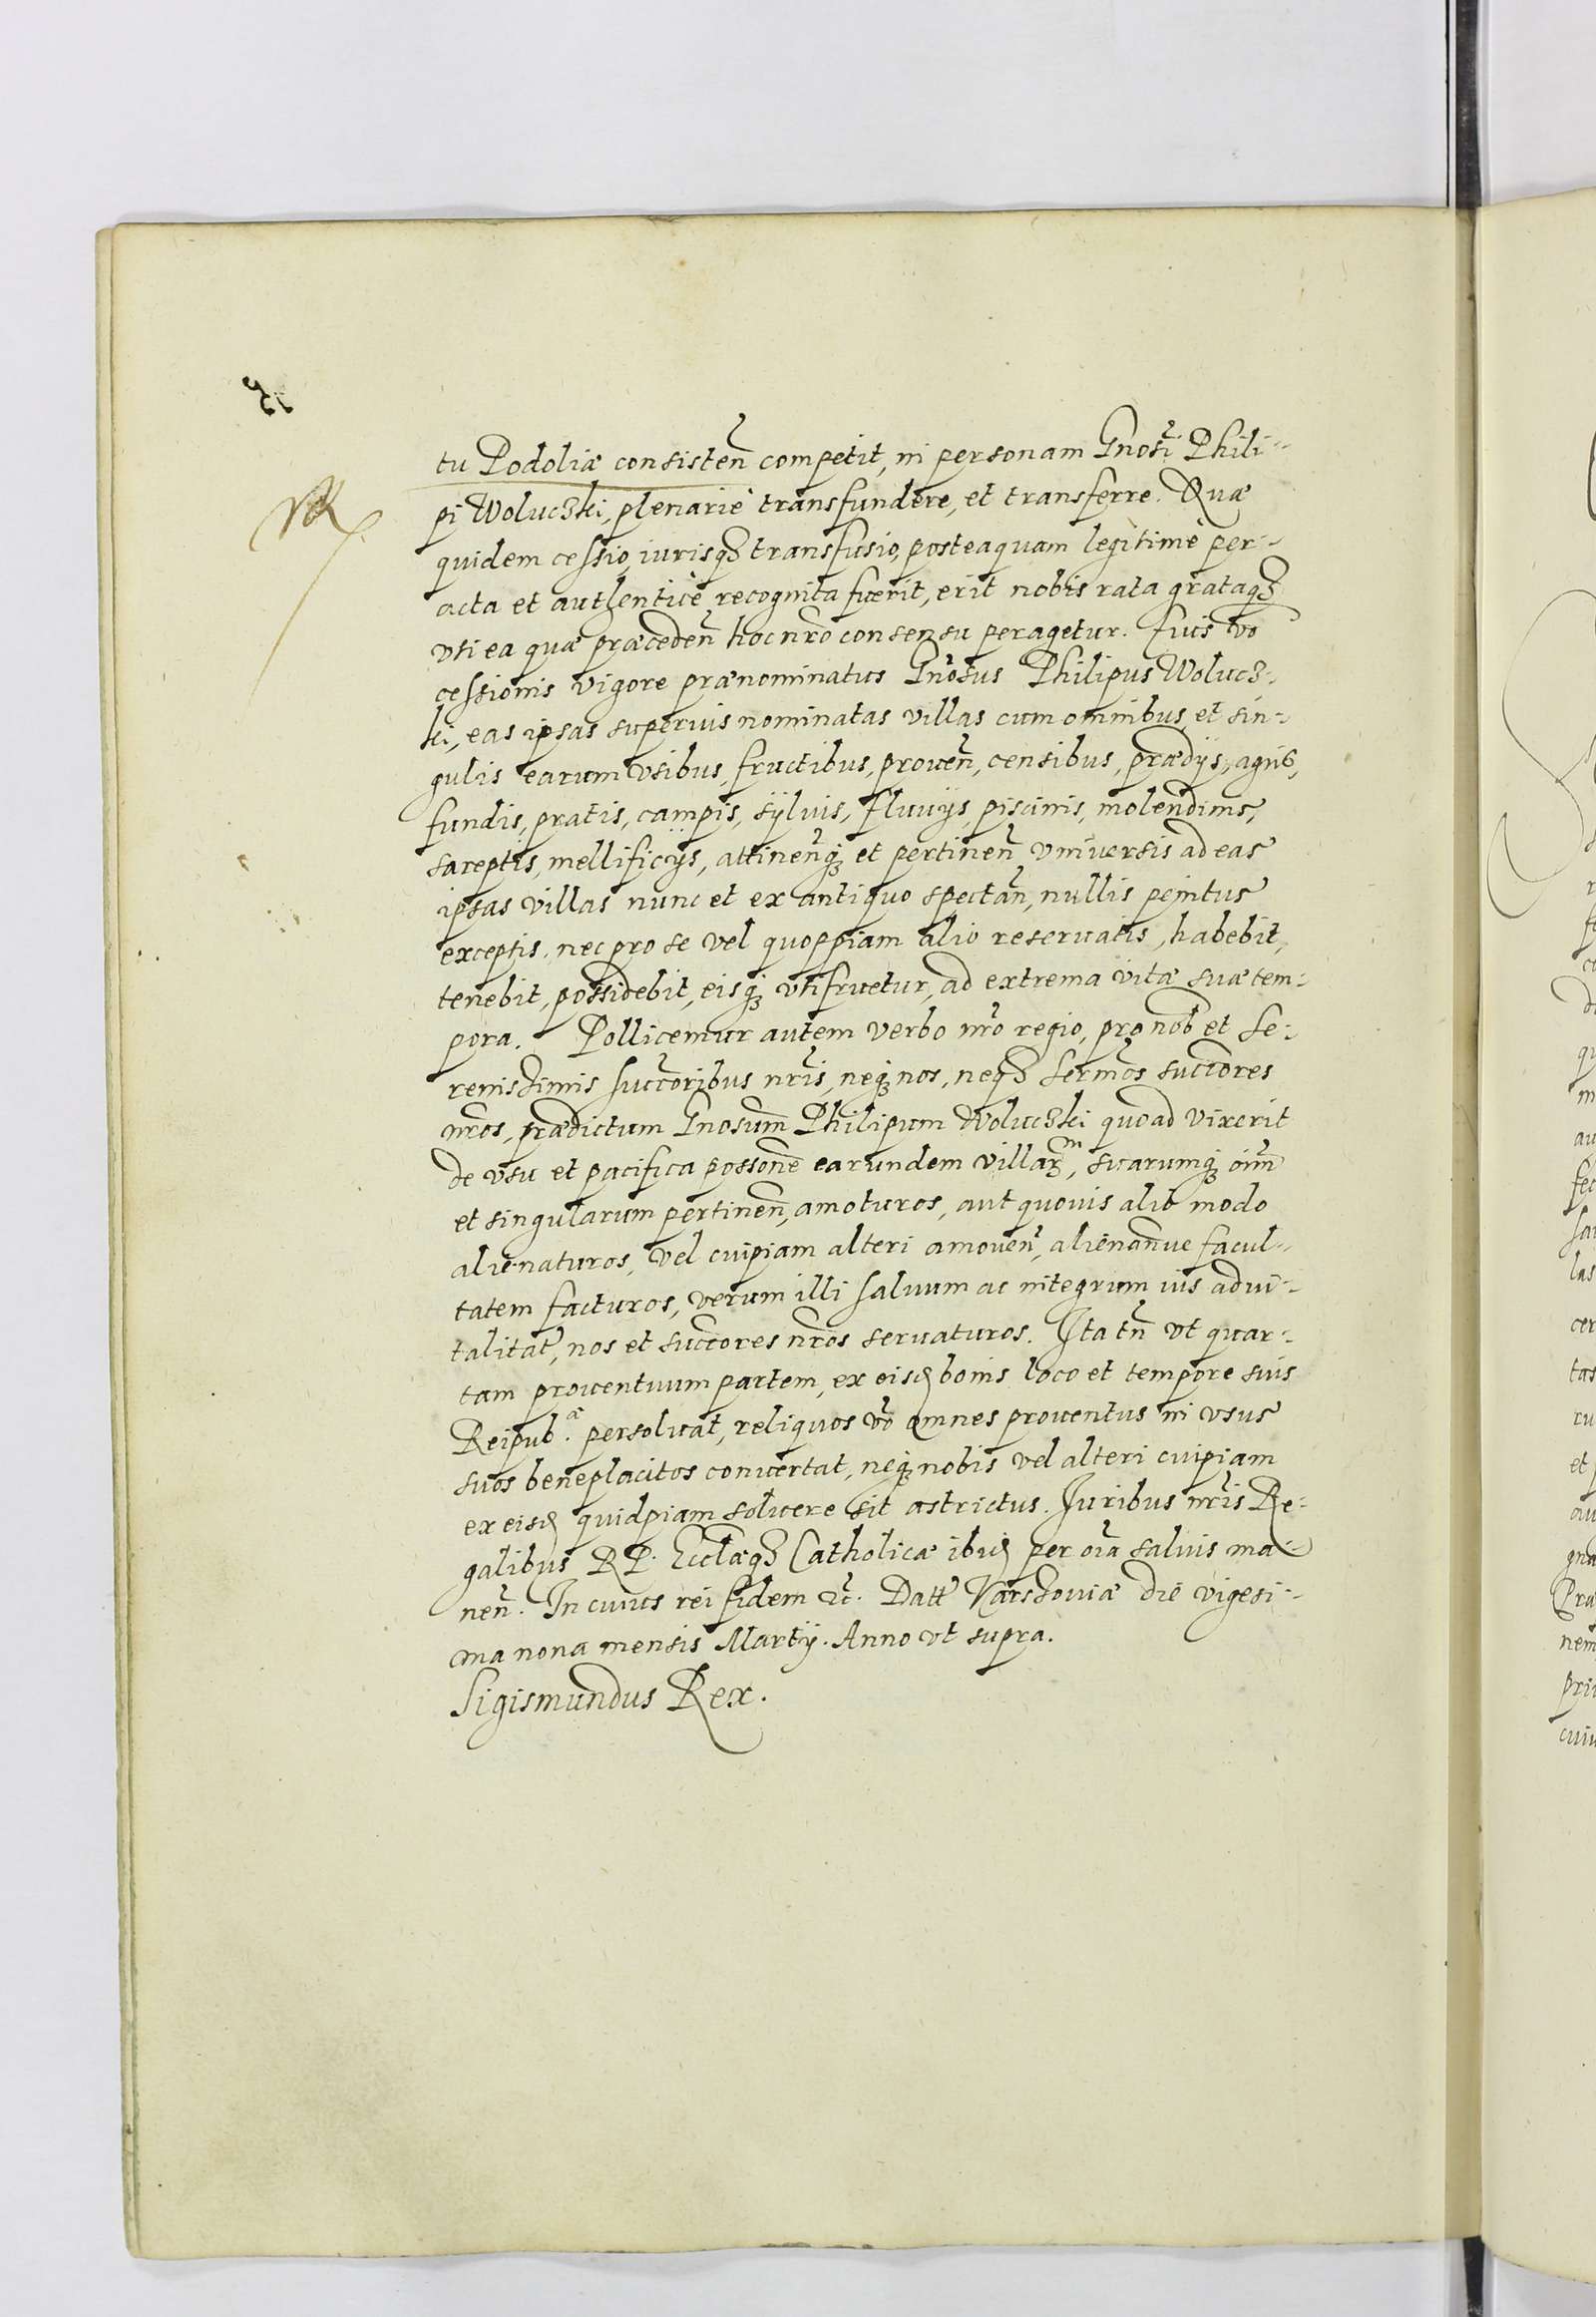 tu Podoliæ consisteñ competit, in personam Gnosi Phili-
pi Woluczki, plenariè transfundere, et transferre. Quæ
quidem cessio, iurisq3 transfusio, posteaquam legitimè per-
acta et authenticè recognita fuerit, erit nobis rata grataq3
vti ea quæ præcedeñ hoc nr̃o consensu peragetur. Cuius vo
cessionis vigore prænominatus Gnosus Philipus Wolucz-
ki, eas ipsas superius nominatas villas cum omnibus et sin-
gulis earum vsibus, fructibus, proueñ, censibus, prædijs, agris,
fundis, pratis, campis, sÿluis, fluuijs, piscinis, molendinis,
sareptis, mellificijs, attineñq3 et pertineñ vniuersis ad eas
ipsas villas nunc et ex antiquo spectañ, nullis penitus
exceptis, nec pro se vel quoppiam alio reseruatis, habebit,
tenebit, possidebit, eisq3 vtifruetur, ad extrema vitæ suæ tem-
pora. Pollicemur autem verbo nr̃o regio, pro nob et Se-
renissimis succoribus nr̃is, neq3 nos, neq3 Sermos succores
nr̃os, prædictum Gnosum Philipum Woluczki quoad vixerit
de vsu et pacifica possone earundem villarm, suarumq3 oim̃
et singularum pertineñ, amoturos, aut quouis alio modo
alienaturos, vel cuipiam alteri amoueñ, alienanue facul-
tatem facturos, verum illi saluum ac integrum ius adui-
talitat, nos et succores nr̃os seruaturos. Ita tñ vt quar-
tam prouentuum partem, ex eisd bonis loco et tempore suis
Reipub.æ persoluat, reliquos vo omnes prouentus in vsus
suos beneplacitos conuertat, neq3 nobis vel alteri cuipiam
ex eisd quidpiam soluere sit astrictus. Iuribus nr̃is Re-
galibus R P. Ecclæq3 Catholicæ ibid per oia saluis ma-
neñ. In cuius rei fidem etc. Datt Varsouiæ die vigesi-
ma nona mensis Martij. Anno vt supra.
Sigismundus Rex.